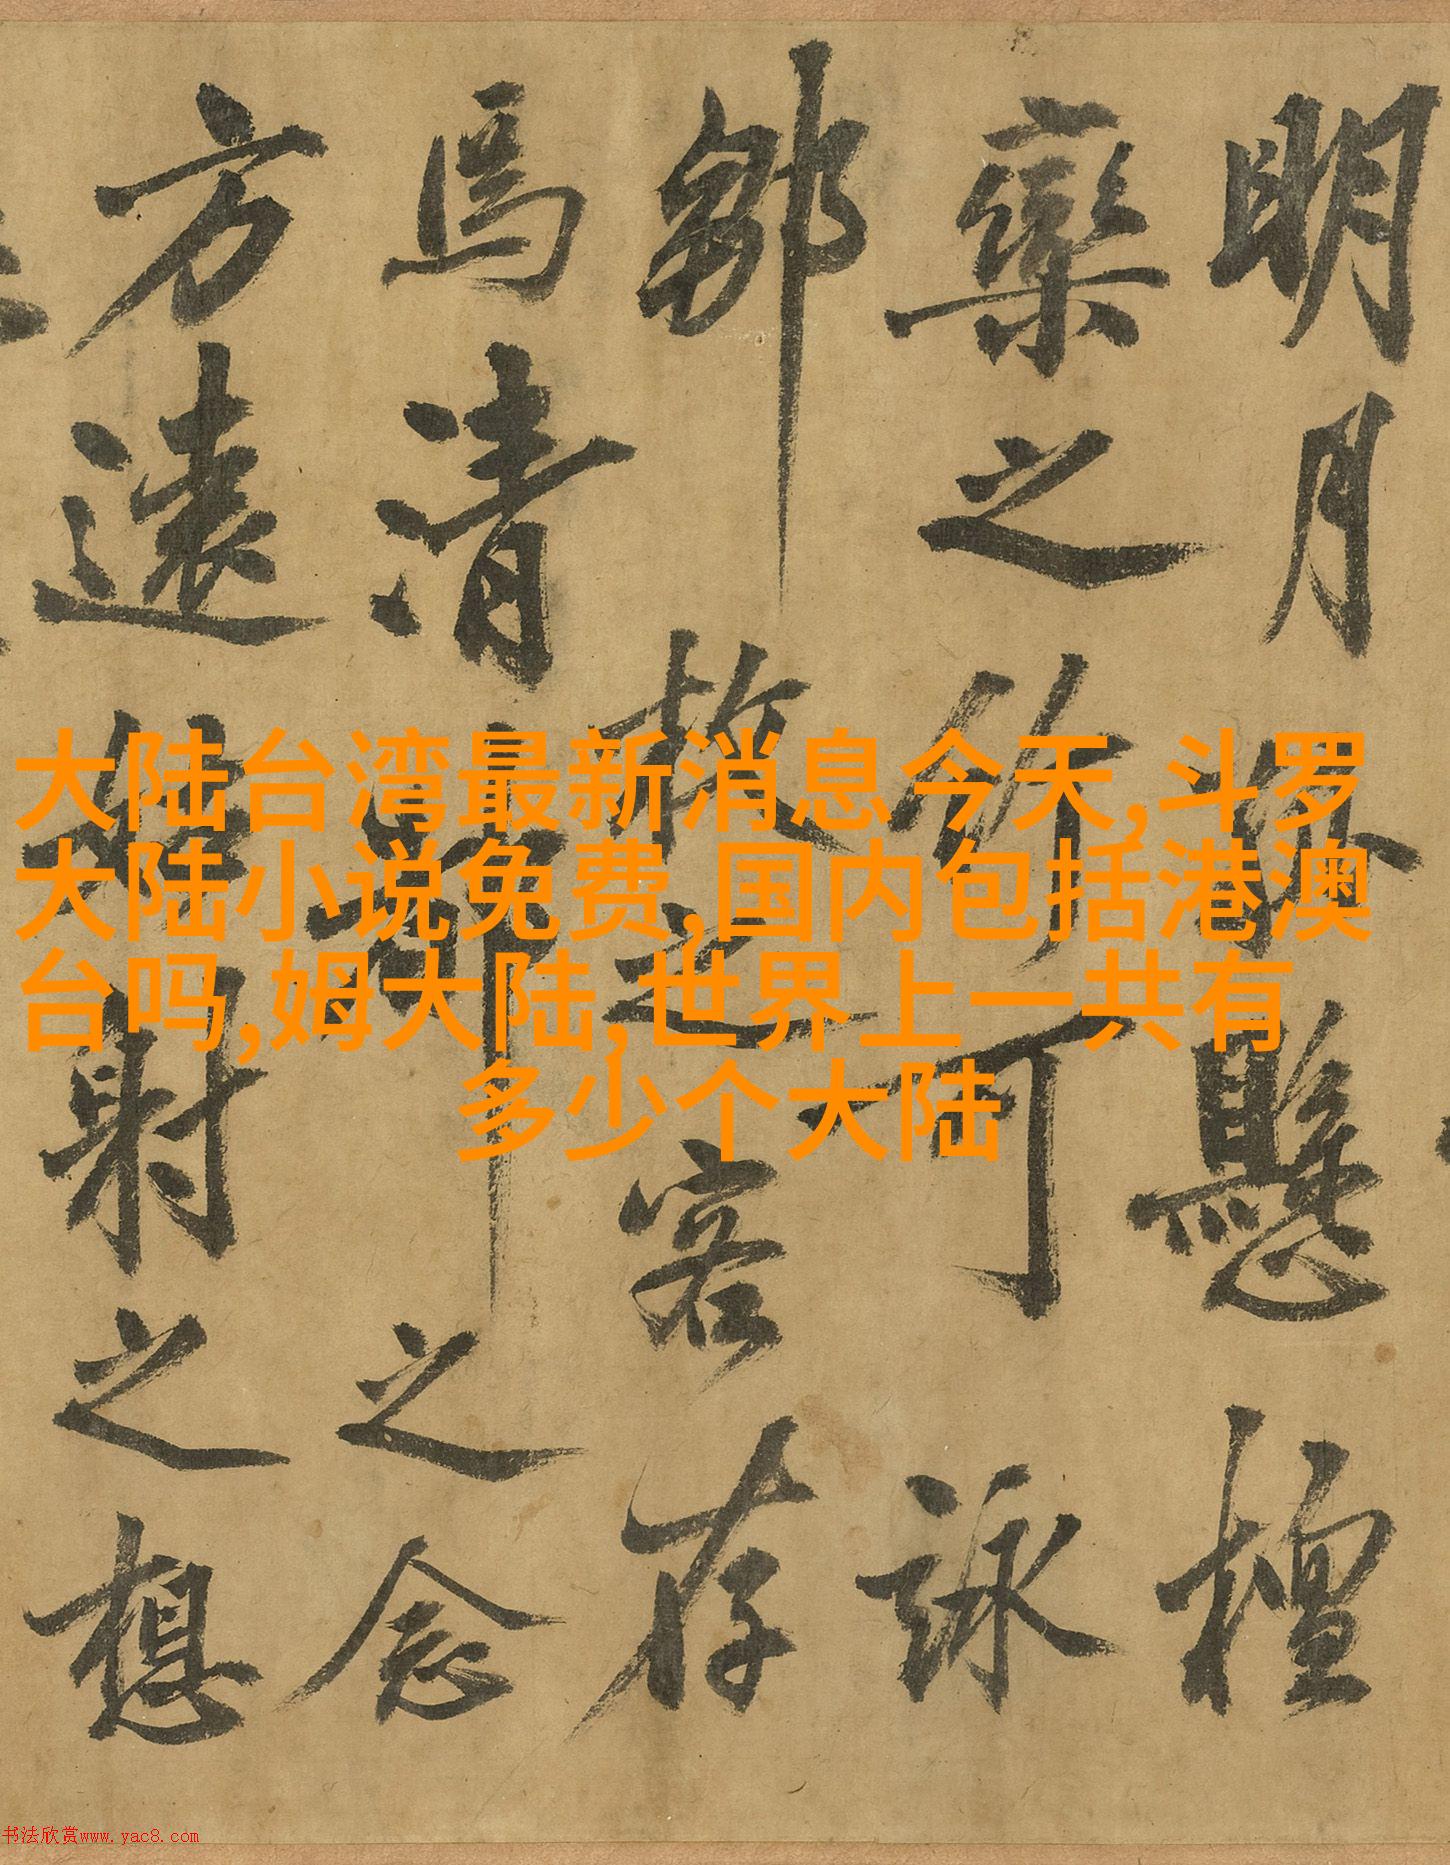 明月將懸檀
欒之竹可詠
鄒枚之客存
焉清之念
方遠姑射之想
大陆台湾最新消息今天,斗罗
大陆小说免费,国内包括港澳
台吗,姆大陆,世界上一共有
多少个大陆
书法欣赏www.yac8.com